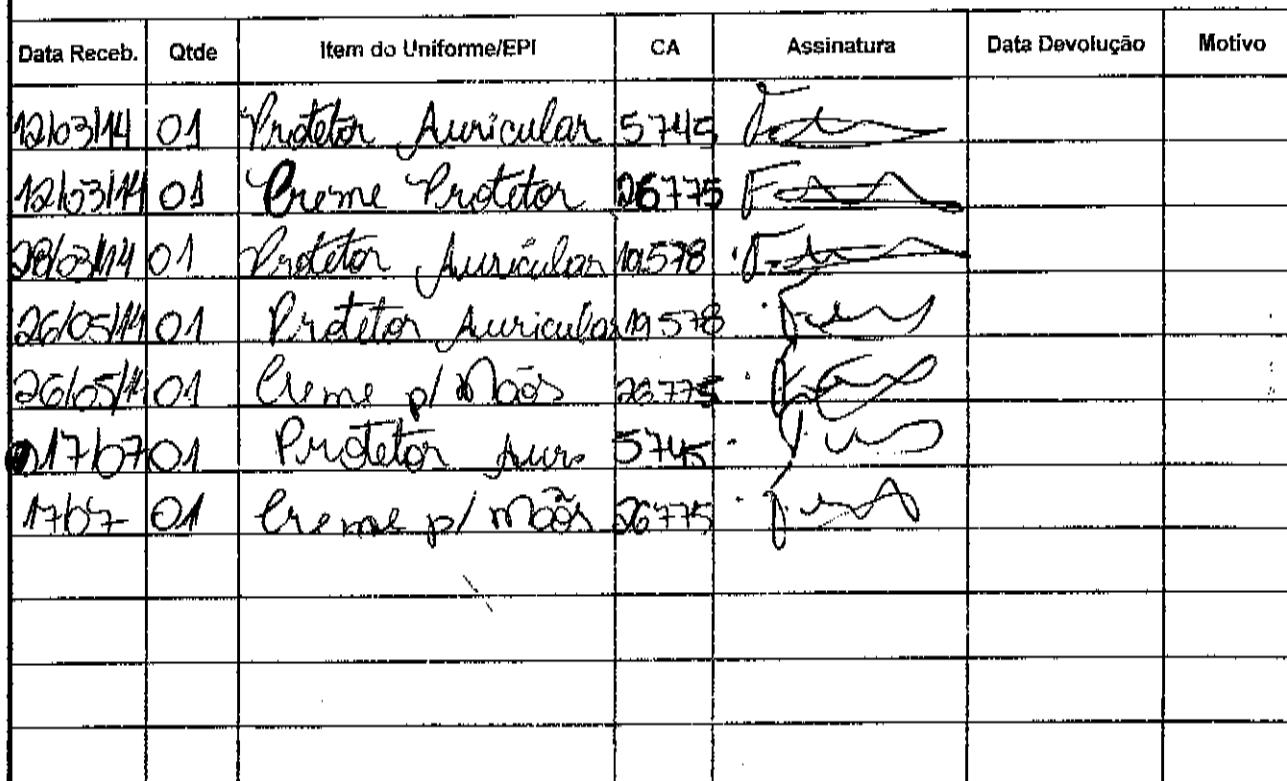 Data Receb. Qtde Item do Uniforme/EPI CA Assinatura Data Devolução Motivo
12/03/14 01 Protetor Auricular 5745
12/03/14 01 Creme Protetor 26775
28/03/14 01 Protetor Auricular 19578
26/05/14 01 Protetor Auricular 19578
26/05/14 01 Creme p/ Mãos 26775
17/07 01 Protetor Aur. 5745
17/07 01 Creme p/ mãos 26775